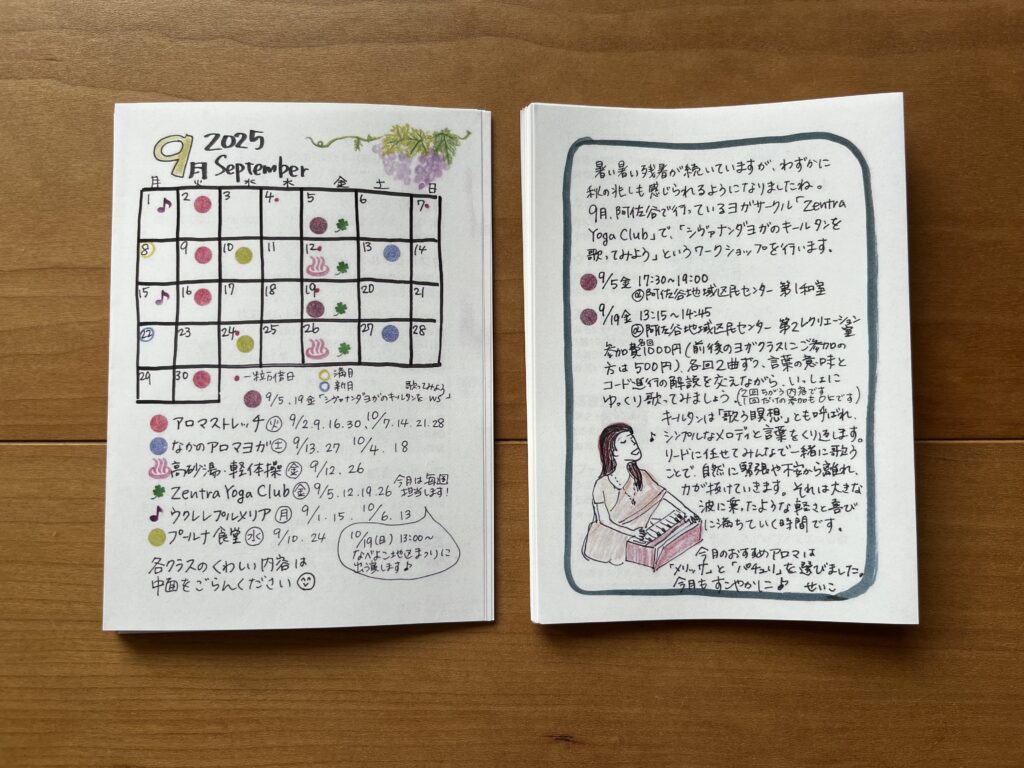 9月 2025
September
月 火 水 木 金 土 日
1 2 3 4 5 6 7
8 9 10 11 12 13 14
15 16 17 18 19 20 21
22 23 24 25 26 27 28
29 30 ・一粒万倍日 満月
新月
9/5.19金「シヴァナンダヨガのキルタンを歌ってみようWS」
アロマストレッチ(火) 9/2.9.16.30 10/7.14.21.28
なかのアロマヨガ(土) 9/13.27 10/4.18
高砂湯・軽体操(金) 9/12.26
Zentra Yoga Club(金) 9/5.12.19.26 今月は毎週担当します!
ウクレレプルメリア(月) 9/1.15. 10/6.13
プールナ食堂(水) 9/10.24
各クラスのくわしい内容は
中面をごらんください
10/19(日)13:00〜
なべよこ地区まつりに
出演します♪
暑い暑い残暑が続いていますが、わずかに
秋の兆しも感じられるようになりましたね。
9月、阿佐谷で行っているヨガサークル「Zentra
Yoga Club」で、「シヴァナンダヨガのキールタンを
歌ってみよう」というワークショップを行います。
9/5金 17:30〜19:00
@阿佐谷地域区民センター 第1和室
9/19金 13:15〜14:45
@阿佐谷地域区民センター 第2レクリエーション室
参加費各回1000円(前後のヨガクラスにご参加の
方は500円)、各回2曲ずつ、言葉の意味と
コード進行の解説を交えながら、いっしょに
ゆっくり歌ってみましょう。(2回ちがう内容です 1回だけの参加もOKです)
キールタンは「歌う瞑想」とも呼ばれ、
♪シンプルなメロディと言葉をくり返します。
リードに任せてみんなで一緒に歌う
ことで、自然に緊張や不安から離れ、
力が抜けていきます。それは大きな
波に乗ったような軽さと喜び
に満ちていく時間です。
今月のおすすめアロマは
「メリッサ」と「パチュリ」を選びました。
今月もすこやかに♪ せいこ